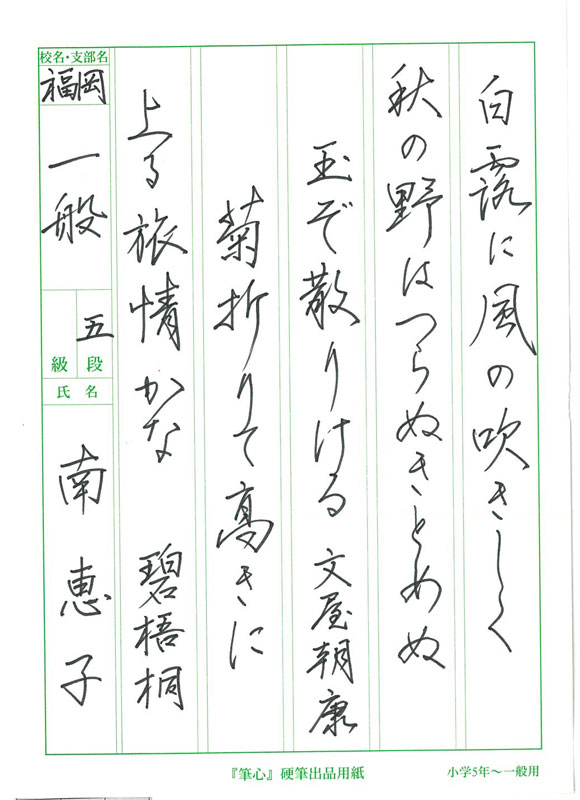 白露に風の吹きしく
秋の野はつらぬきとめぬ
玉ぞ散りける 文屋朝康
菊折りて高きに
上る旅情かな 碧梧桐
校名・支部名
福岡
一般
五
級 段
氏名
南恵子
『筆心』硬筆出品用紙
小学5年～一般用